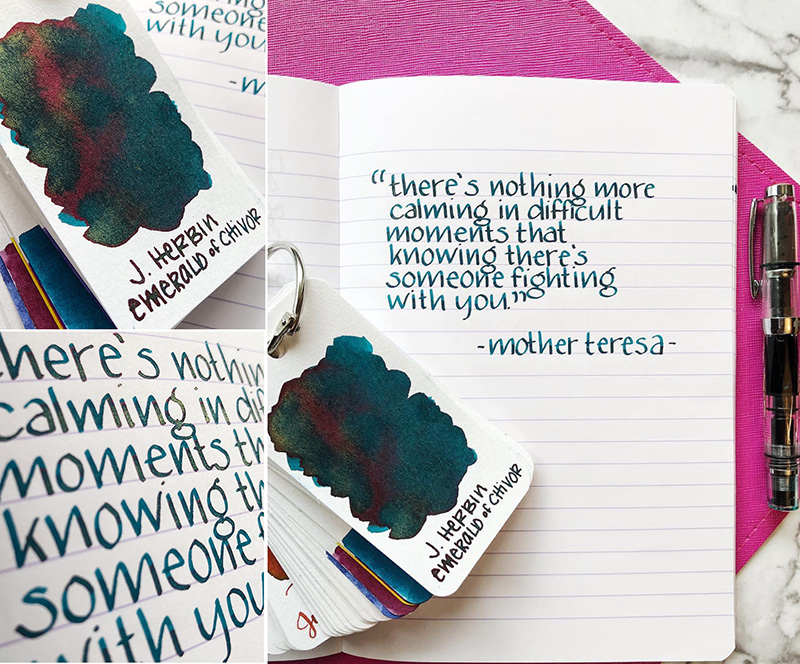 someone
with you
-m
J. HERBIN
EMERALD of CHIVOR
there's nothin
calming in dif
moments th
knowing th
someone f
with you
"there's nothing more
calming in difficult
moments that
knowing there's
someone fighting
with you."
-mother teresa-
J. HERBIN
EMERALD of CHIVOR